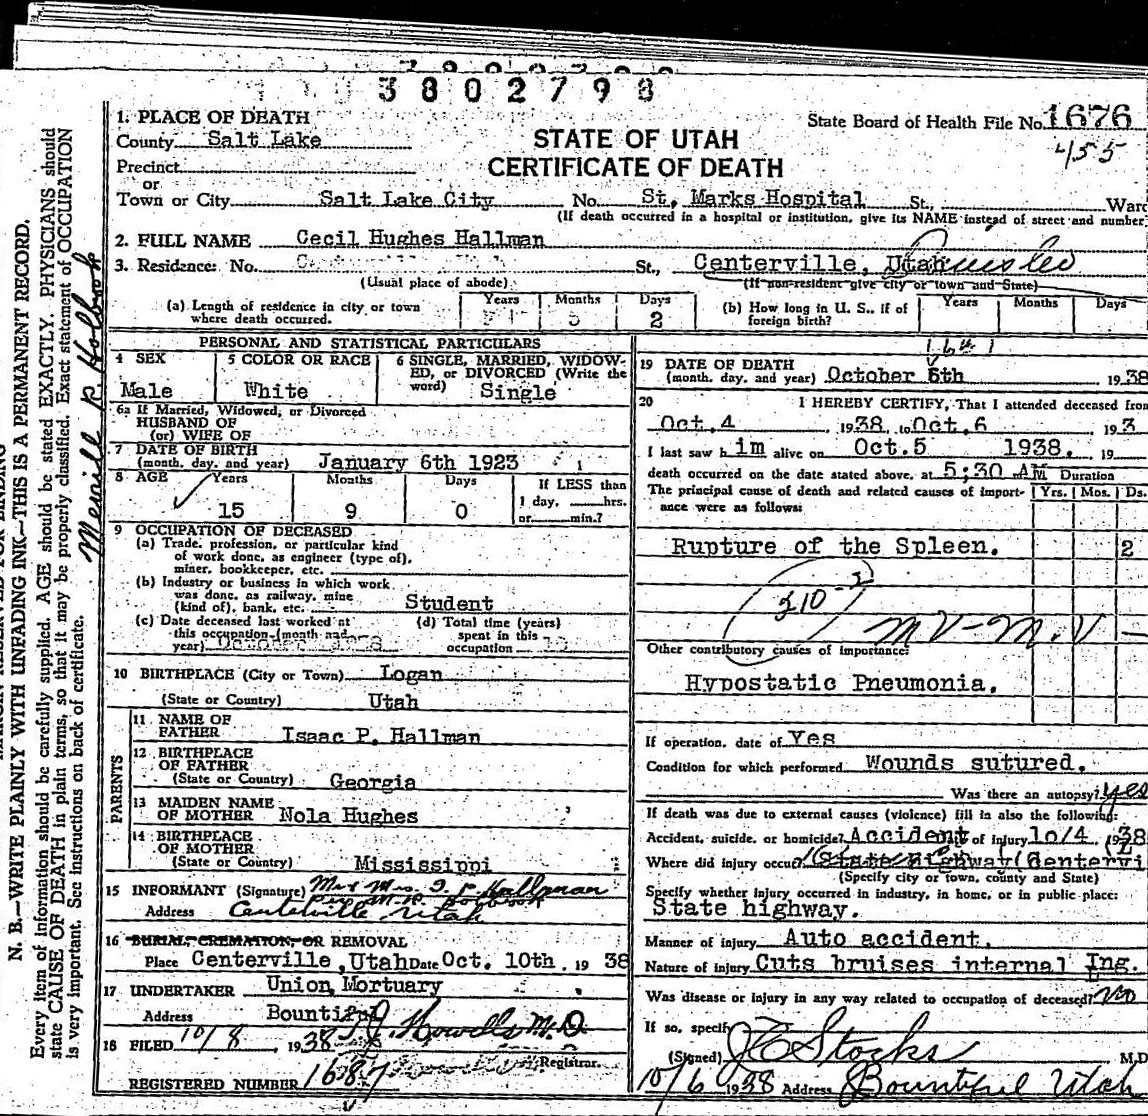 3802798
1. PLACE OF DEATH
County Salt Lake
STATE OF UTAH
CERTIFICATE OF DEATH
State Board of Health File No. 1676
455
Precinct
or
Town or City Salt Lake City No. St. Marks Hospital St., Ward
(If death occurred in a hospital or institution, give its NAME instead of street and number
2. FULL NAME Cecil Hughes Hallman
3. Residence: No. St., Centerville, Utah
(Usual place of abode) (If non-resident give city or town and State)
(a) Length of residence in city or town where death occurred. Years Months Days 2
(b) How long in U. S., if of foreign birth? Years Months Days
PERSONAL AND STATISTICAL PARTICULARS
4 SEX Male
5 COLOR OR RACE White
6 SINGLE, MARRIED, WIDOWED, or DIVORCED (Write the word) Single
6a If Married, Widowed, or Divorced
HUSBAND OF
(or) WIFE OF
7 DATE OF BIRTH
(month, day, and year) January 6th 1923
8 AGE Years 15 Months 9 Days 0 If LESS than 1 day, hrs. or min.?
9 OCCUPATION OF DECEASED
(a) Trade, profession, or particular kind
of work done, as engineer (type of),
miner, bookkeeper, etc.
(b) Industry or business in which work
was done, as railway, mine
(kind of), bank, etc. Student
(c) Date deceased last worked at
this occupation (month and
year) October
(d) Total time (years)
spent in this
occupation
10 BIRTHPLACE (City or Town) Logan
(State or Country) Utah
PARENTS
11 NAME OF
FATHER Isaac P. Hallman
12 BIRTHPLACE
OF FATHER
(State or Country) Georgia
13 MAIDEN NAME
OF MOTHER Nola Hughes
14 BIRTHPLACE
OF MOTHER
(State or Country) Mississippi
15 INFORMANT (Signature) Mr & Mrs. I. P. Hallman
Address Centerville Utah
16 BURIAL, CREMATION, OR REMOVAL
Place Centerville, Utah Date Oct. 10th, 1938
17 UNDERTAKER Union Mortuary
Address Bountiful
18 FILED 10/8, 1938
Registrar.
REGISTERED NUMBER 1687
19 DATE OF DEATH
(month, day, and year) October 6th 1938
20 I HEREBY CERTIFY, That I attended deceased from
Oct. 4, 1938, to Oct. 6, 193
I last saw h im alive on Oct. 5 1938. 19
death occurred on the date stated above, at 5:30 AM Duration
The principal cause of death and related causes of importance were as follows: Yrs. Mos. Ds.
Rupture of the Spleen. 2
210
Other contributory causes of importance:
Hypostatic Pneumonia.
If operation, date of Yes
Condition for which performed Wounds sutured.
Was there an autopsy? yes
If death was due to external causes (violence) fill in also the following:
Accident, suicide, or homicide? Accident Date of injury 10/4 1938
Where did injury occur State highway (Centervi
(Specify city or town, county and State)
Specify whether injury occurred in industry, in home, or in public place:
State highway.
Manner of injury Auto accident.
Nature of injury Cuts bruises internal Ing.
Was disease or injury in any way related to occupation of deceased? no
If so, specify
(Signed) J E Stocks M.D
10/6 1938 Address Bountiful Utah
N. B.—WRITE PLAINLY WITH UNFADING INK—THIS IS A PERMANENT RECORD.
Every item of information should be carefully supplied. AGE should be stated EXACTLY. PHYSICIANS should
state CAUSE OF DEATH in plain terms, so that it may be properly classified. Exact statement of OCCUPATION
is very important. See instructions on back of certificate.